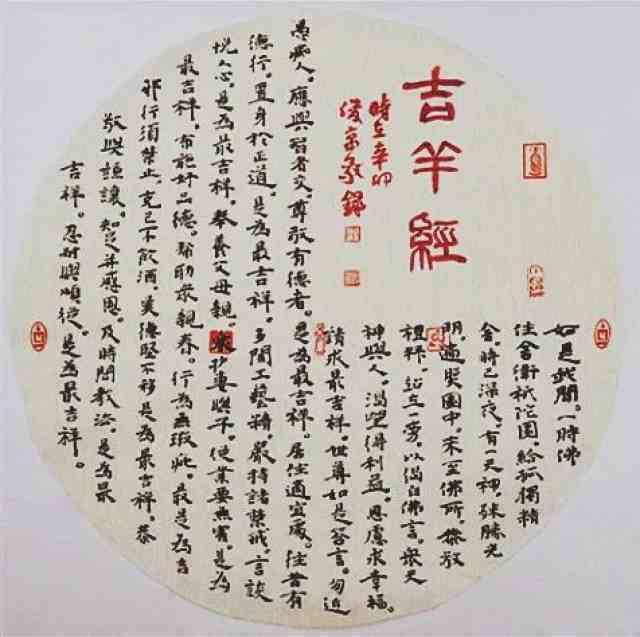 吉羊經
時在辛卯
俊京敬錄
如是我聞。一時佛
住舍衛祇陀園,給孤獨精
舍。時已深夜,有一天神,殊勝光
明,遍照園中,来至佛所,恭敬
禮拜,站立一旁,以偈白佛言。衆天
神與人。渴望得利益。思慮求幸福。
請求最吉祥。世尊如是答言。勿近
愚癡人。應與智者交。尊敬有德者。是為最吉祥。居住適宜處。往昔有
德行。置身於正道。是為最吉祥。多聞工藝精。嚴持諸禁戒。言談
悅人心。是為最吉祥。奉養父母親。愛护妻與子。從業要無害。是為
最吉祥。布施好品德。幫助衆親眷。行為無瑕疵。最是為吉
邪行須禁止。克己不飲酒。美德堅不移是為最吉祥。恭
敬與謙讓。知足并感恩。及時聞教法。是為最
吉祥。忍耐與順從。是為最吉祥。